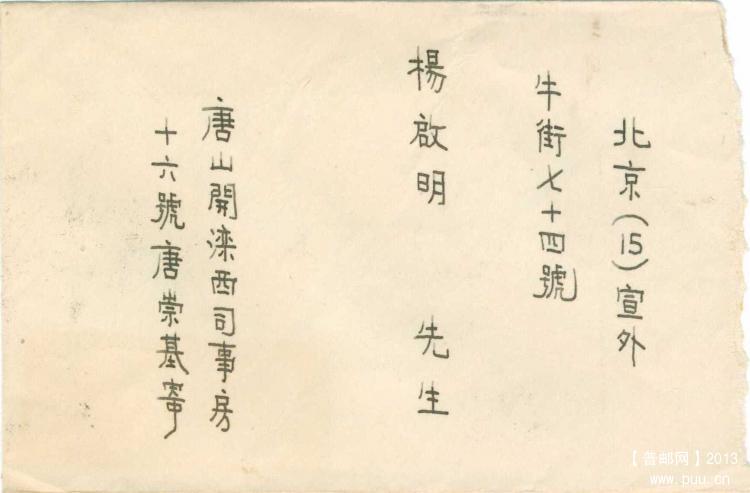 北京(15)宣外
牛街七十四號
楊啟明 先生
唐山開滦西司事房
十六號唐崇基寄
【普邮网】2013
www.puu.cn